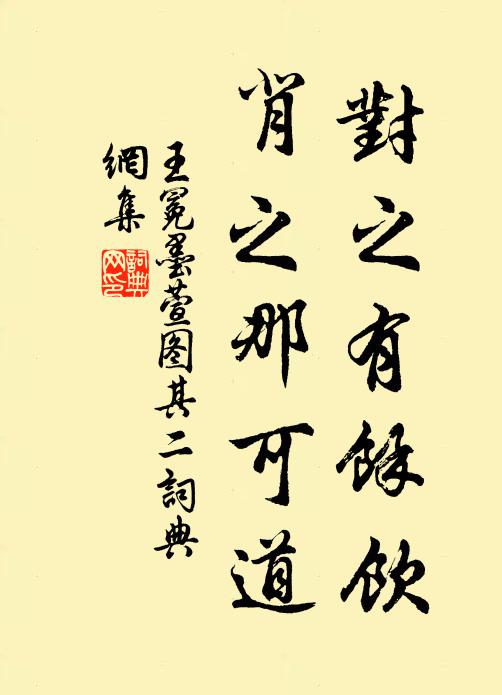 對之有餘飲
背之那可道
王冕墨萱图其二詞典
網集
詞典
网印